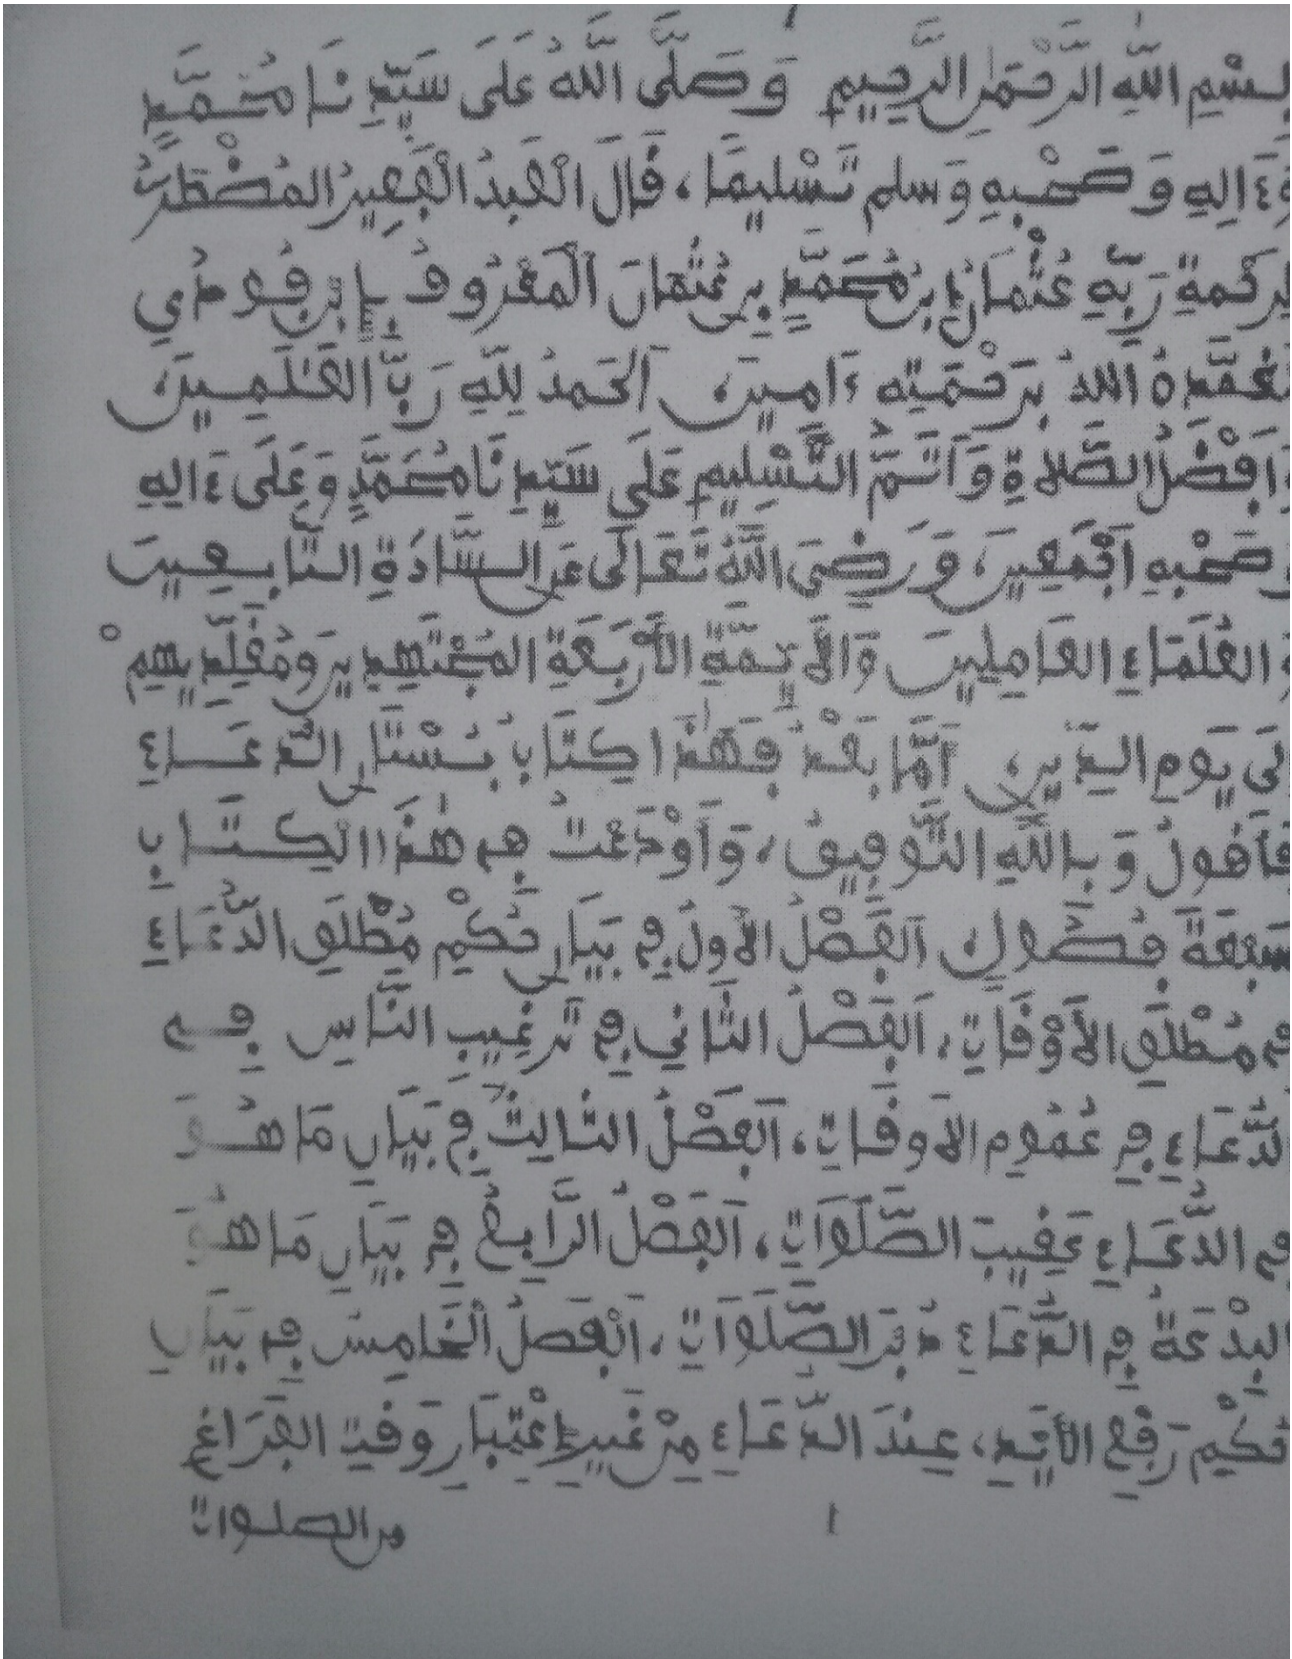 بِسْمِ اللَّهِ الرَّحْمَٰنِ الرَّحِيمِ وَصَلَّى اللَّهُ عَلَى سَيِّدِنَا مُحَمَّدٍ
وَءَالِهِ وَصَحْبِهِ وَسلم تَسْلِيمًا، قَالَ الْعَبْدُ الْفَقِيرُ المُضْطَرُّ
لِرَحْمَةِ رَبِّهِ عُثْمَانُ بْنُ مُحَمَّدٍ بِنِ عُثْمَانَ الْمَعْرُوفُ بِإِبْنِ فُودُي
تَغَمَّدَهُ اللهُ بِرَحْمَتِهِ ءَامِينَ، اَلحَمدُ لِلَّهِ رَبِّ العَٰلَمِينَ،
وَاَفْضَلُ الصَّلَاةِ وَاَتَمُّ التَّسْلِيمِ عَلَى سَيِّدِنَا مُحَمَّدٍ وَعَلَى ءَالِهِ
وَصَحْبِهِ اَجْمَعِينَ، وَرَضِيَ اللَّهُ تَعَالَى عَنِ السَّادَةِ التَّابِعِينَ
وَالعُلَمَاءِ العَامِلِينَ وَالأَيِمَّةِ الأَرْبَعَةِ المُجْتَهِدِينَ وَمُقَلِّدِيهِمْ
اِلَى يَوْمِ الدِّينِ، اَمَّا بَعْدُ فَهَٰذَا كِتَابُ بُسْتَانِ الدُّعَاءِ
فَأَقُولُ وَبِاللَّهِ التَّوفِيقُ، وَأَوْدَعْتُ فِي هَٰذَا الْكِتَابِ
سَبْعَةَ فُصُولٍ، اَلفَصْلُ الأَولُ فِي بَيَانِ حُكْمِ مُطْلَقِ الدُّعَاءِ
فِي مُطْلَقِ الأَوْقَاتِ، اَلفَصْلُ الثَّانِي فِي تَرْغِيبِ النَّاسِ فِي
الدُّعَاءِ فِي عُمُومِ الأَوقَاتِ، اَلفَصْلُ الثَّالِثُ فِي بَيَانِ مَا هُوَ
فِي الدُّعَاءِ عَقِيبَ الصَّلَوَاتِ، اَلفَصْلُ الرَّابِعُ فِي بَيَانِ مَا هُوَ
البِدْعَةُ فِي الدُّعَاءِ دُبُرَ الصَّلَوَاتِ، اَلْفَصلُ الْخَامِسُ فِي بَيَانِ
حُكْمِ رَفْعِ الأَيْدِ، عِندَ الدُّعَاءِ مِنْ غَيرِ إِعْتِبَارِ وَقتِ الفَرَاغِ
من الصلوات
١